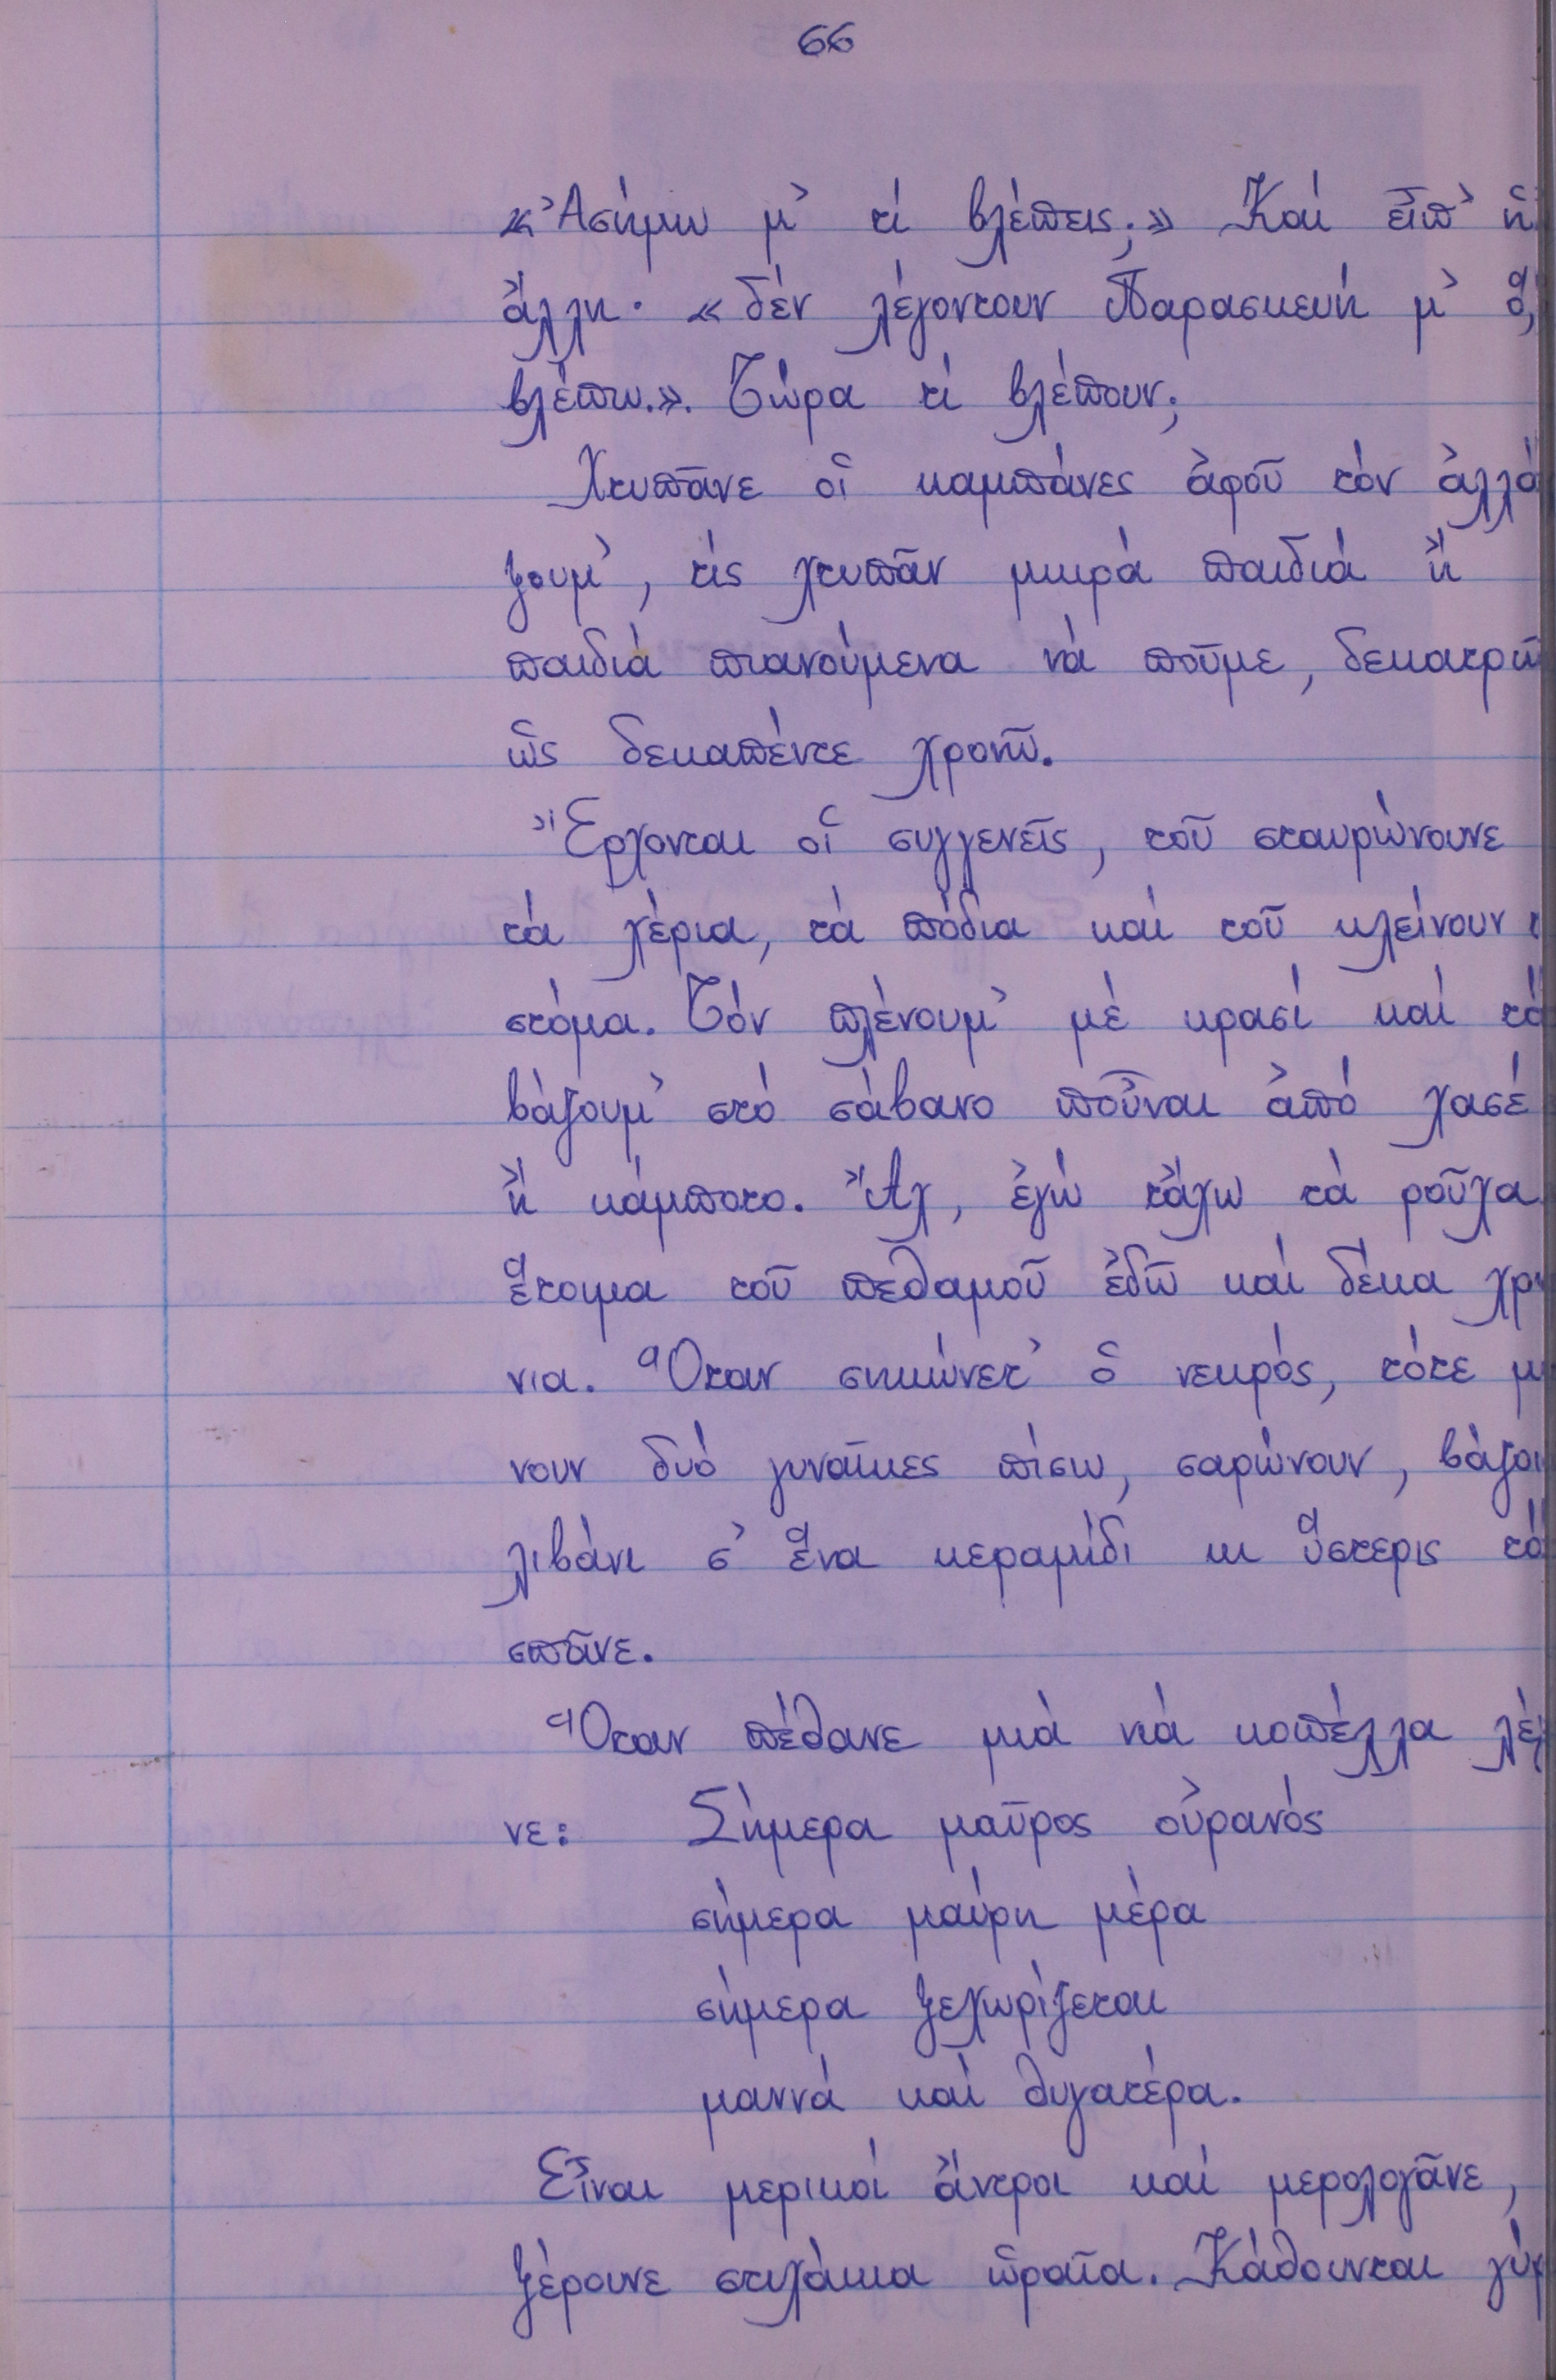 66
«Ἀσήμω μ' τί βλέπεις;» Καί εἶπ' ἡ
ἄλλη· «δέν λέγοντουν Παρασκευή μ' ὅ,
βλέπω.». Τώρα τί βλέπουν;
Χτυπᾶνε οἱ καμπάνες ἀφοῦ τόν ἀλλά
ξουμ', τίς χτυπᾶν μικρά παιδιά ἤ
παιδιά πιανούμενα νά ποῦμε, δεκατριῶ
ὥς δεκαπέντε χρονῶ.
Ἔρχονται οἱ συγγενεῖς, τοῦ σταυρώνουνε
τά χέρια, τά πόδια καί τοῦ κλείνουν τ
στόμα. Τόν πλένουμ' μέ κρασί καί τό
βάζουμ' στό σάβανο ποὖναι ἀπό χασέ
ἤ κάμποτο. Ἄχ, ἐγώ τἄχω τά ροῦχα
ἕτοιμα τοῦ πεθαμοῦ ἐδῶ καί δέκα χρ
νια. Ὅταν σηκώνετ' ὁ νεκρός, τότε μ
νουν δυό γυναῖκες πίσω, σαρώνουν, βάζου
λιβάνι σ' ἕνα κεραμίδι κι ὕστερις τό
σπᾶνε.
Ὅταν πέθανε μιά νιά κοπέλλα λέγ
νε: Σήμερα μαῦρος οὐρανός
σήμερα μαύρη μέρα
σήμερα ξεχωρίζεται
μαννά καί θυγατέρα.
Εἶναι μερικοί ἄντροι καί μερολογᾶνε,
ξέρουνε στιχάκια ὡραῖα. Κάθουνται γύρ